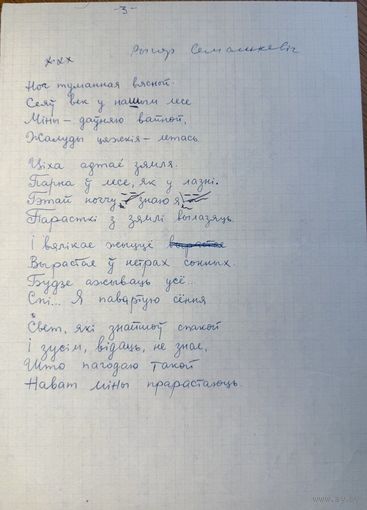 -3-
Рыгор Семашкевіч
х-хх
Ноч туманная вясной.
Сеяў век у нашым лесе
Міны – даўняю вайной,
Жалуды цяжкія – летась.
Ціха адтае зямля.
Парна ў лесе, як у лазні.
Гэтай ноччу знаю я
Парасткі з зямлі вылазяць.
І вялікае жыццё вырастае
Вырастае ў нетрах сонных.
Будзе ажываць усё...
Спі... Я павартую сёння
Свет, які знайшоў спакой
І зусім, відаць, не знае,
Што пагодаю такой
Нават міны прарастаюць.